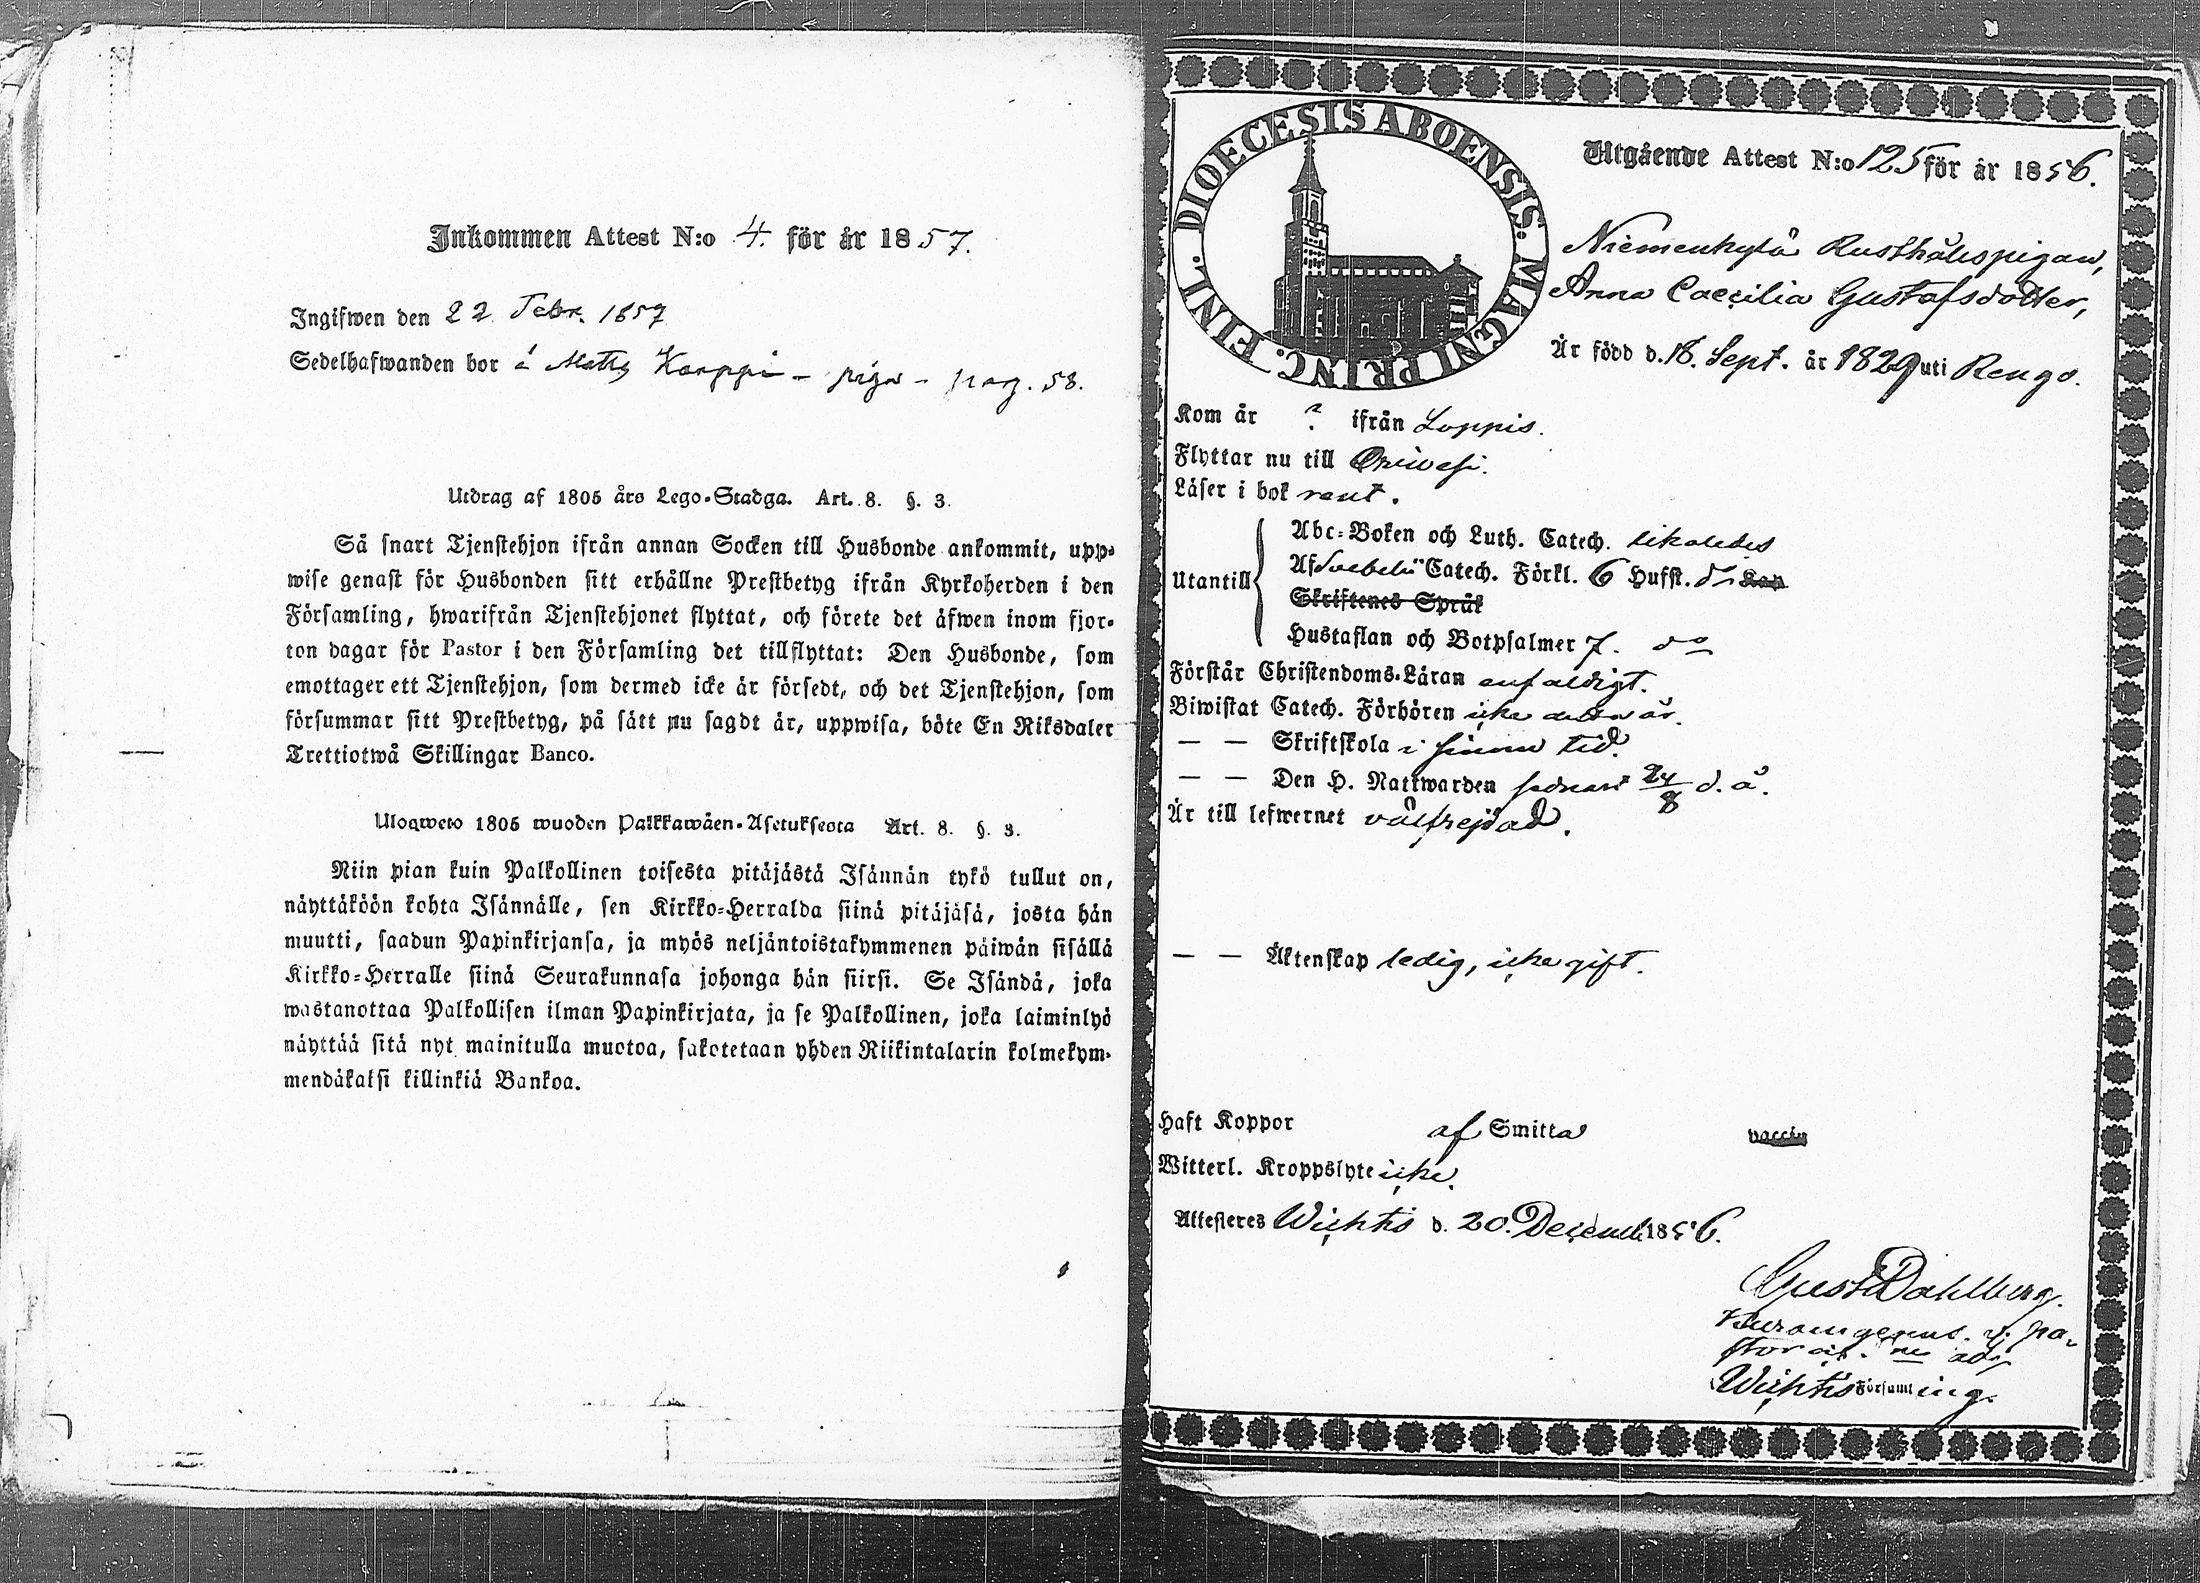 Inkommen Attest N:o 4. för år 1857.
Ingifwen den 22 Febr. 1857
Sedelhafwanden bor å Matts Karppi – piga – pag. 58.
Utdrag af 1805 års Lego-Stadga. Art. 8. §. 3.
Så snart Tjenstehjon ifrån annan Socken till Husbonde ankommit, upp-
wise genast för Husbonden sitt erhållne Prestbetyg ifrån Kyrkoherden i den
Församling, hwarifrån Tjenstehjonet flyttat, och förete det äfwen inom fjor-
ton dagar för Pastor i den Församling det tillflyttat: Den Husbonde, som
emottager ett Tjenstehjon, som dermed icke är försedt, och det Tjenstehjon, som
försummar sitt Prestbetyg, på sätt nu sagdt är, uppwisa, böte En Riksdaler
Trettiotwå Skillingar Banco.
Ulosweto 1805 wuoden Palkkawäen-Asetuksesta Art. 8. §. 3.
Niin pian kuin Palkollinen toisesta pitäjästä Isännän tykö tullut on,
näyttäköön kohta Isännälle, sen Kirkko-Herralda siinä pitäjäsä, josta hän
muutti, saadun Papinkirjansa, ja myös neljäntoistakymmenen päiwän sisällä
Kirkko-Herralle siinä Seurakunnasa johonga hän siirsi. Se Isändä, joka
wastanottaa Palkollisen ilman Papinkirjata, ja se Palkollinen, joka laiminlyö
näyttää sitä nyt mainitulla muotoa, sakotetaan yhden Riikintalarin kolmekym-
mendäkaksi killinkiä Bankoa.
DIOECESIS ABOENSIS. MAGNI PRINC. FINL.
Utgående Attest N:o 125 för år 1856.
Niemenkylä Rusthålspigan,
Anna Caecilia Gustafsdotter,
Är född d. 18. Sept. år 1829 uti Rengo.
Kom år ? ifrån Loppis.
Flyttar nu till Orivesi.
Läser i bok rent.
Utantill
Abc-Boken och Luth. Catech. likaledes
Af Svebelii Catech. Förkl. 6 Hufst. Kap
Skriftenes Språk
Hustaflan och Botpsalmer 7. do
Förstår Christendoms-Läran enfaldigt.
Biwistat Catech. Förhören icke detta år.
— — Skriftskola i sinom tid.
— — Den H. Nattwarden sednast 24/8 d. å.
Är till lefwernet välfrejdad.
— — Äktenskap ledig, icke gift.
Haft Koppor af Smitta vaccin
Witterl. Kroppslyte icke.
Attesteres Wichtis d. 20. Decemb. 1856.
Gust Dahlberg.
Wichtis Församling.